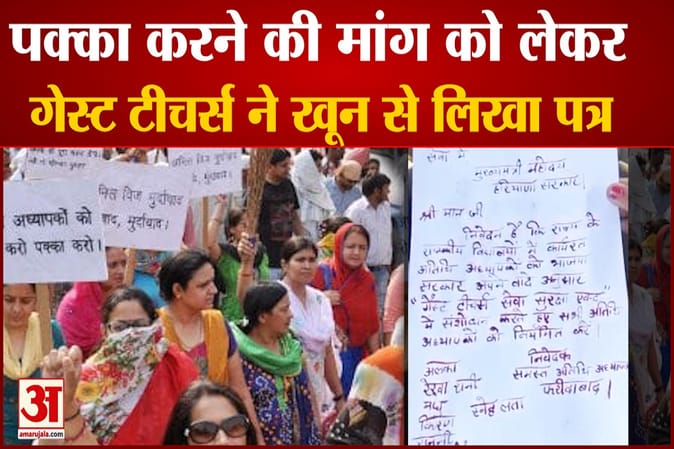 पक्का करने की मांग को लेकर
गेस्ट टीचर्स ने खून से लिखा पत्र
अनिल विज मुर्दाबाद
मुर्दाबाद,
अनिल विज मुर्दाबाद
बाद, मुर्दाबाद.
अध्यापकों को
करो पक्का करो।
सेवा में
मुख्यमंत्री महोदय
हरियाणा सरकार।
श्री मान जी
निवेदन है कि राज्य के
राजकीय विद्यालयों में कार्यरत
अतिथि अध्यापकों को भाजपा
सरकार अपने वादे अनुसार
"गेस्ट टीचर्स सेवा सुरक्षा एक्ट"
में संशोधन करते हुए सभी अतिथि
अध्यापकों को नियमित करें।
निवेदक
अलका समस्त अतिथि अध्यापक
रेखा रानी फरीदाबाद।
स्नेह लता
किरण
अ
amarujala.com